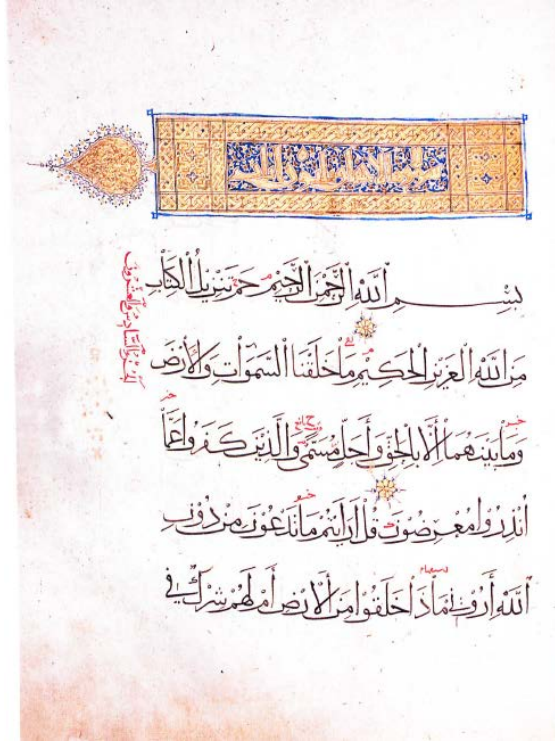 بِسْمِ اللَّهِ الرَّحْمَنِ الرَّحِيمِ حم تَنْزِيلُ الْكِتَابِ
مِنَ اللَّهِ الْعَزِيزِ الْحَكِيمِ مَا خَلَقْنَا السَّمَوَاتِ وَالْأَرْضَ
وَمَا بَيْنَهُمَا إِلَّا بِالْحَقِّ وَأَجَلٍ مُسَمًّى وَالَّذِينَ كَفَرُوا عَمَّا
أُنْذِرُوا مُعْرِضُونَ قُلْ أَرَأَيْتُمْ مَا تَدْعُونَ مِنْ دُونِ
اللَّهِ أَرُونِي مَاذَا خَلَقُوا مِنَ الْأَرْضِ أَمْ لَهُمْ شِرْكٌ فِي
السادس والعشرون